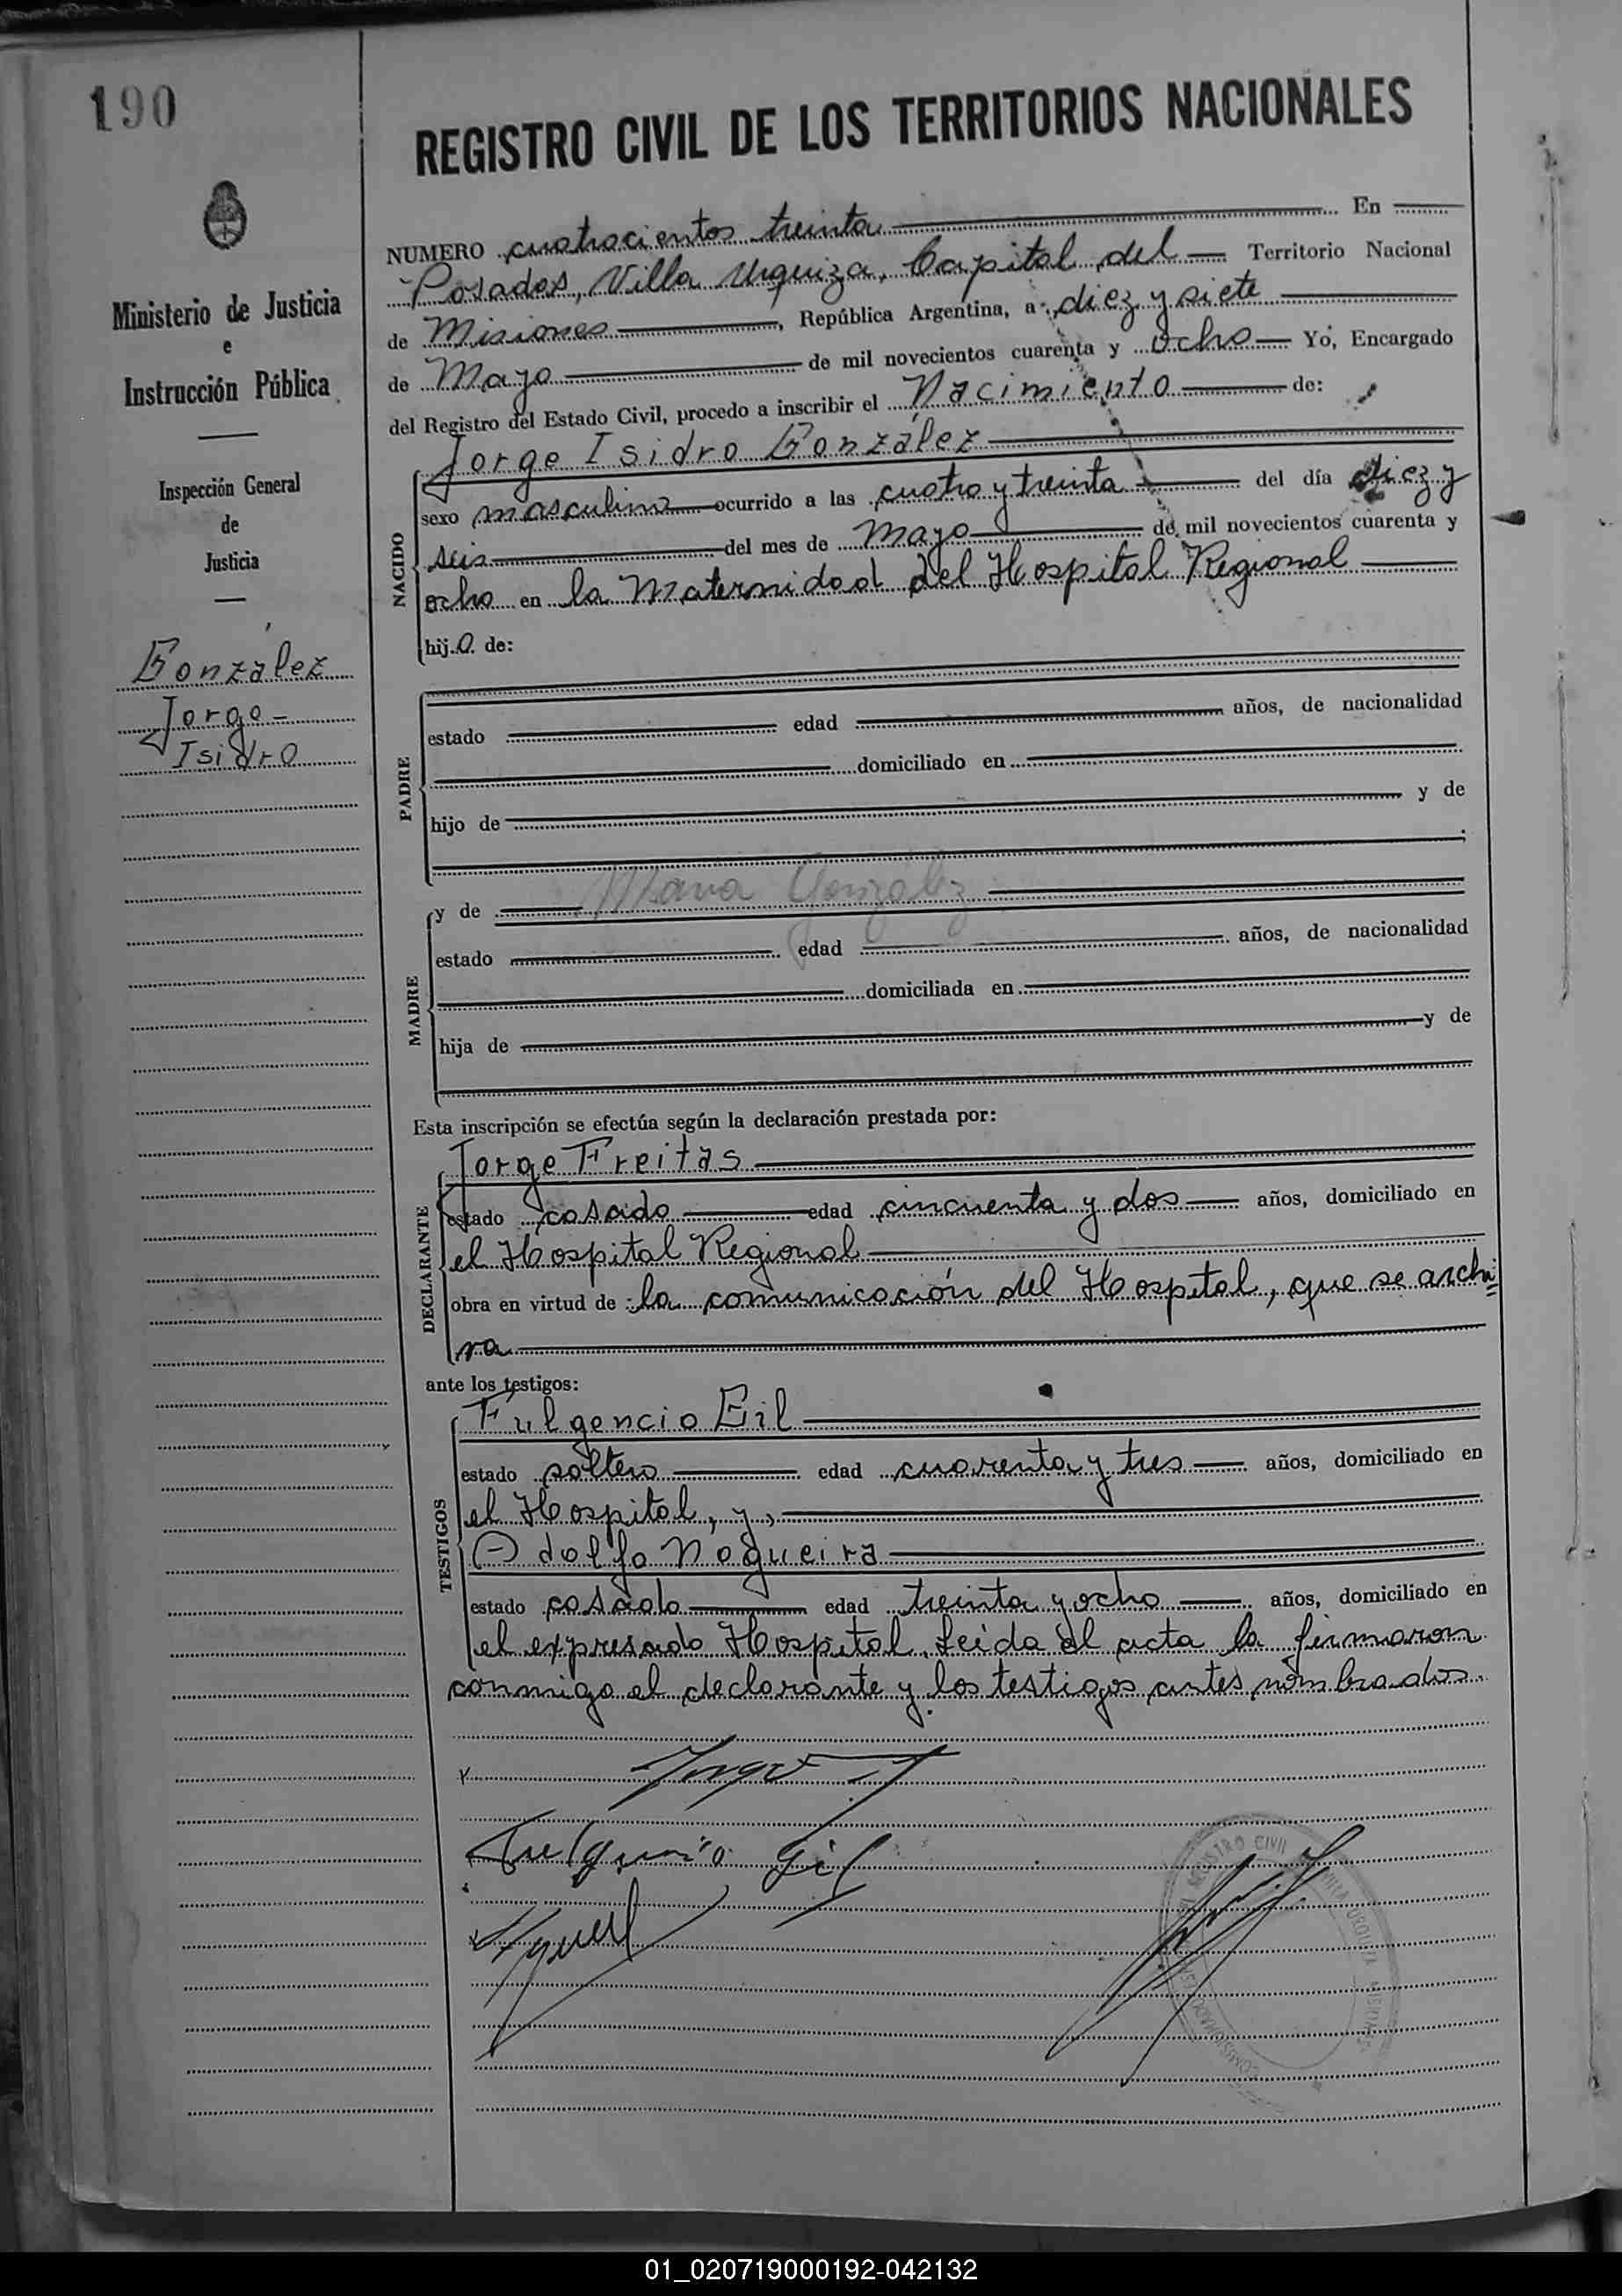 190
REGISTRO CIVIL DE LOS TERRITORIOS NACIONALES
Ministerio de Justicia
e
Instrucción Pública
Inspección General
de
Justicia
González
Jorge
Isidro
NUMERO cuatrocientos treinta En
Posadas, Villa Urquiza, Capital del Territorio Nacional
de Misiones, República Argentina, a diez y siete
de Mayo de mil novecientos cuarenta y ocho Yo, Encargado
del Registro del Estado Civil, procedo a inscribir el Nacimiento de:
NACIDO
Jorge Isidro González
sexo masculino ocurrido a las cuatro y treinta del día diez y
seis del mes de Mayo de mil novecientos cuarenta y
ocho en la Maternidad del Hospital Regional
hijo de:
PADRE
estado edad años, de nacionalidad
domiciliado en
hijo de y de
MADRE
y de Maria Gonzalez
estado edad años, de nacionalidad
domiciliada en
hija de y de
Esta inscripción se efectúa según la declaración prestada por:
DECLARANTE
Jorge Freitas
estado casado edad cincuenta y dos años, domiciliado en
el Hospital Regional
obra en virtud de: la comunicación del Hospital, que se archi=
va
ante los testigos:
TESTIGOS
Fulgencio Gil
estado soltero edad cuarenta y tres años, domiciliado en
el Hospital, y,
Adolfo Nogueira
estado casado edad treinta y ocho años, domiciliado en
el expresado Hospital. Leida el acta la firmaron
conmigo el declarante y los testigos antes nombrados.
Jorge
Fulgencio Gil
REGISTRO CIVIL
VILLA URQUIZA MISIONES
01_020719000192-042132